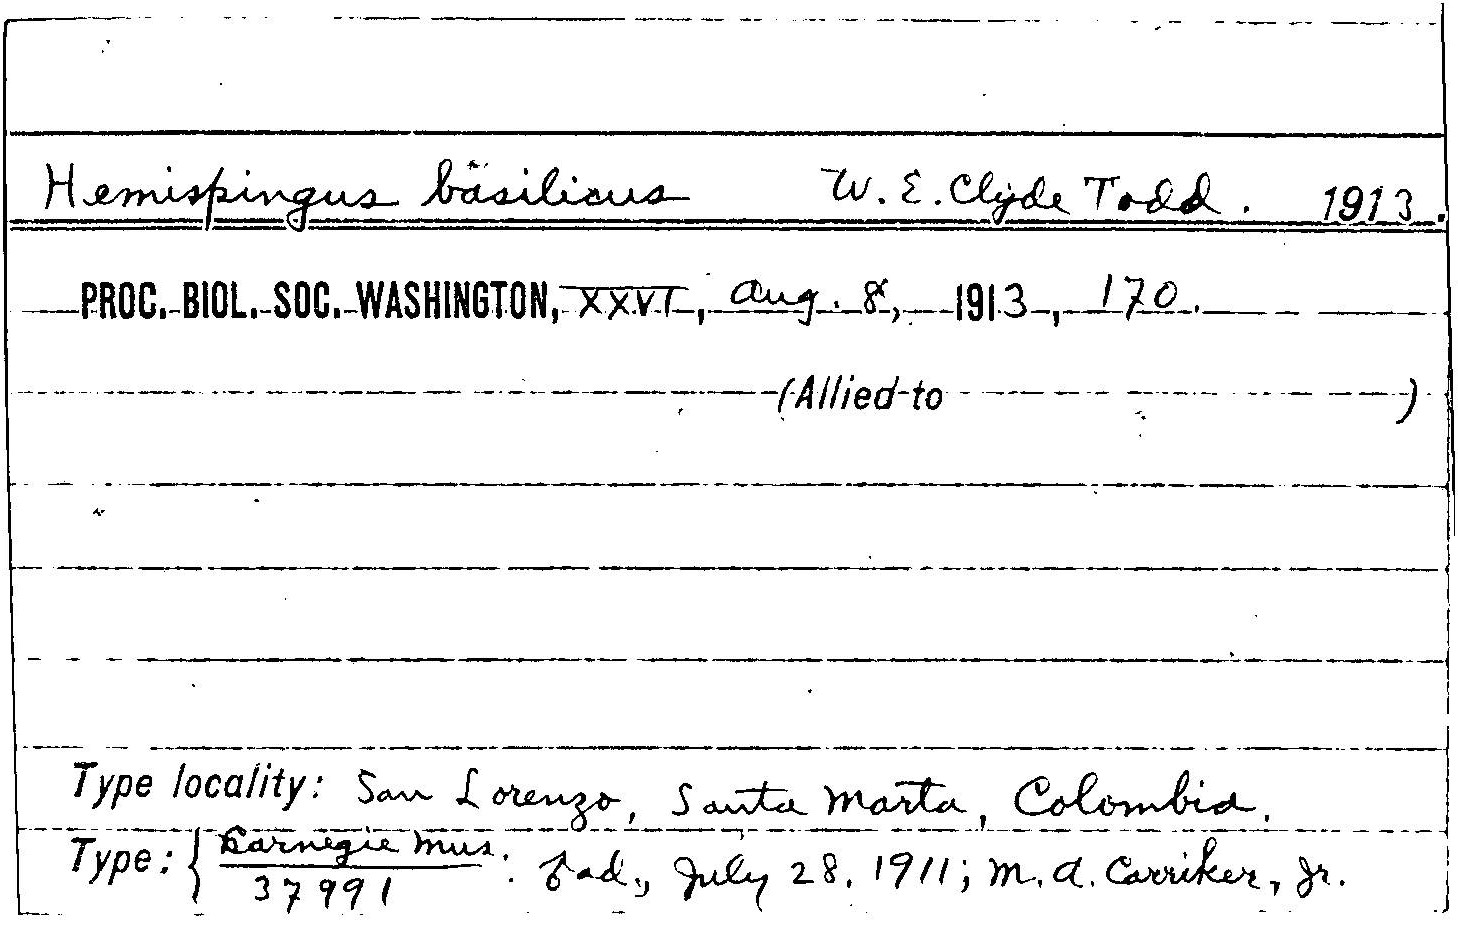 Hemispingus basilicus W. E. Clyde Todd. 1913.
PROC. BIOL. SOC. WASHINGTON, XXVI, Aug. 8, 1913, 170.
(Allied to )
Type locality: San Lorenzo, Santa Marta, Colombia.
Type: { Carnegie Mus. ♂ad., July 28, 1911; M. A. Carriker, Jr.
37991